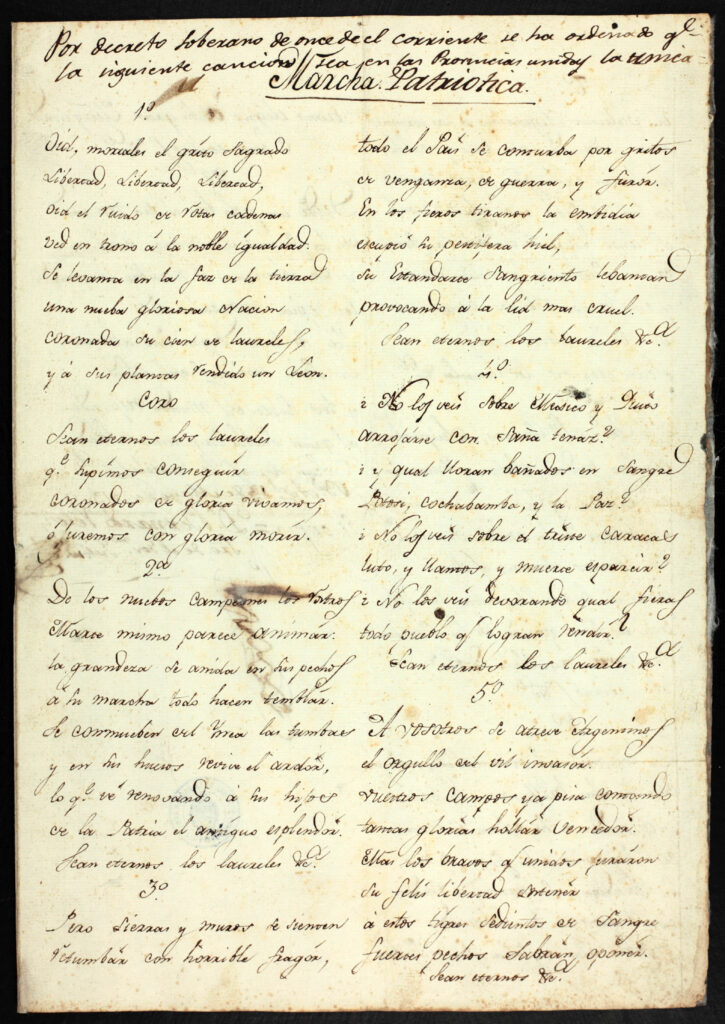 Por decreto soberano de once de el corriente se ha ordenado qe.
la siguiente cancion sea en las Provincias unidas la unica
Marcha Patriotica.
1º
Oid, mortales el grito Sagrado
Libertad, Libertad, Libertad,
Oid el ruido de rotas cadenas
Ved en trono á la noble igualdad.
Se levanta en la faz de la tierra
una nueba gloriosa Nacion
coronada su cien de laureles,
y á sus plantas rendido un Leon.
CORO
Sean eternos los laureles
qe. supimos conseguir
coronados de gloria vivamos,
ó juremos con gloria morir.
2º
De los nuebos campeones los rostros
Marte mismo parece animar.
la grandeza se anida en sus pechos
á su marcha todo hacen temblar.
Se conmueben del Ynca las tumbas
y en sus huesos revive el ardor,
lo qe. vé renovando á sus hijos
de la Patria el antiguo esplendor.
Sean eternos los laureles &ca.
3º
Pero sierras y muros se sienten
retumbar con horrible fragor,
todo el Pais se conturba por gritos
de venganza, de guerra, y furor.
En los fieros tiranos la embidia
escupió su pestifera hiel,
su Estandarte Sangriento lebantan
provocando á la lid mas cruel.
Sean eternos los laureles &ca.
4º
¿ No los veis sobre Mexico y Quito
arrojarse con Saña tenáz?
¿ y qual lloran bañados en Sangre
Potosi, cochabamba, y la Paz?
¿ No los veis sobre el triste caracas
luto, y llantos, y muerte esparcir?
¿ No los veis devorando qual fieras
todo pueblo qe. logran rendir?
Sean eternos los laureles &ca.
5º
A vosotros se atreve Argentinos
el orgullo del vil invasor.
vuestros campos ya pisa contando
tantas glorias hollar vencedor.
Mas los bravos qe. unidos juraron
su feliz libertad sostener
á estos tigres sedientos de Sangre
fuertes pechos Sabrán oponer.
Sean eternos &ca.